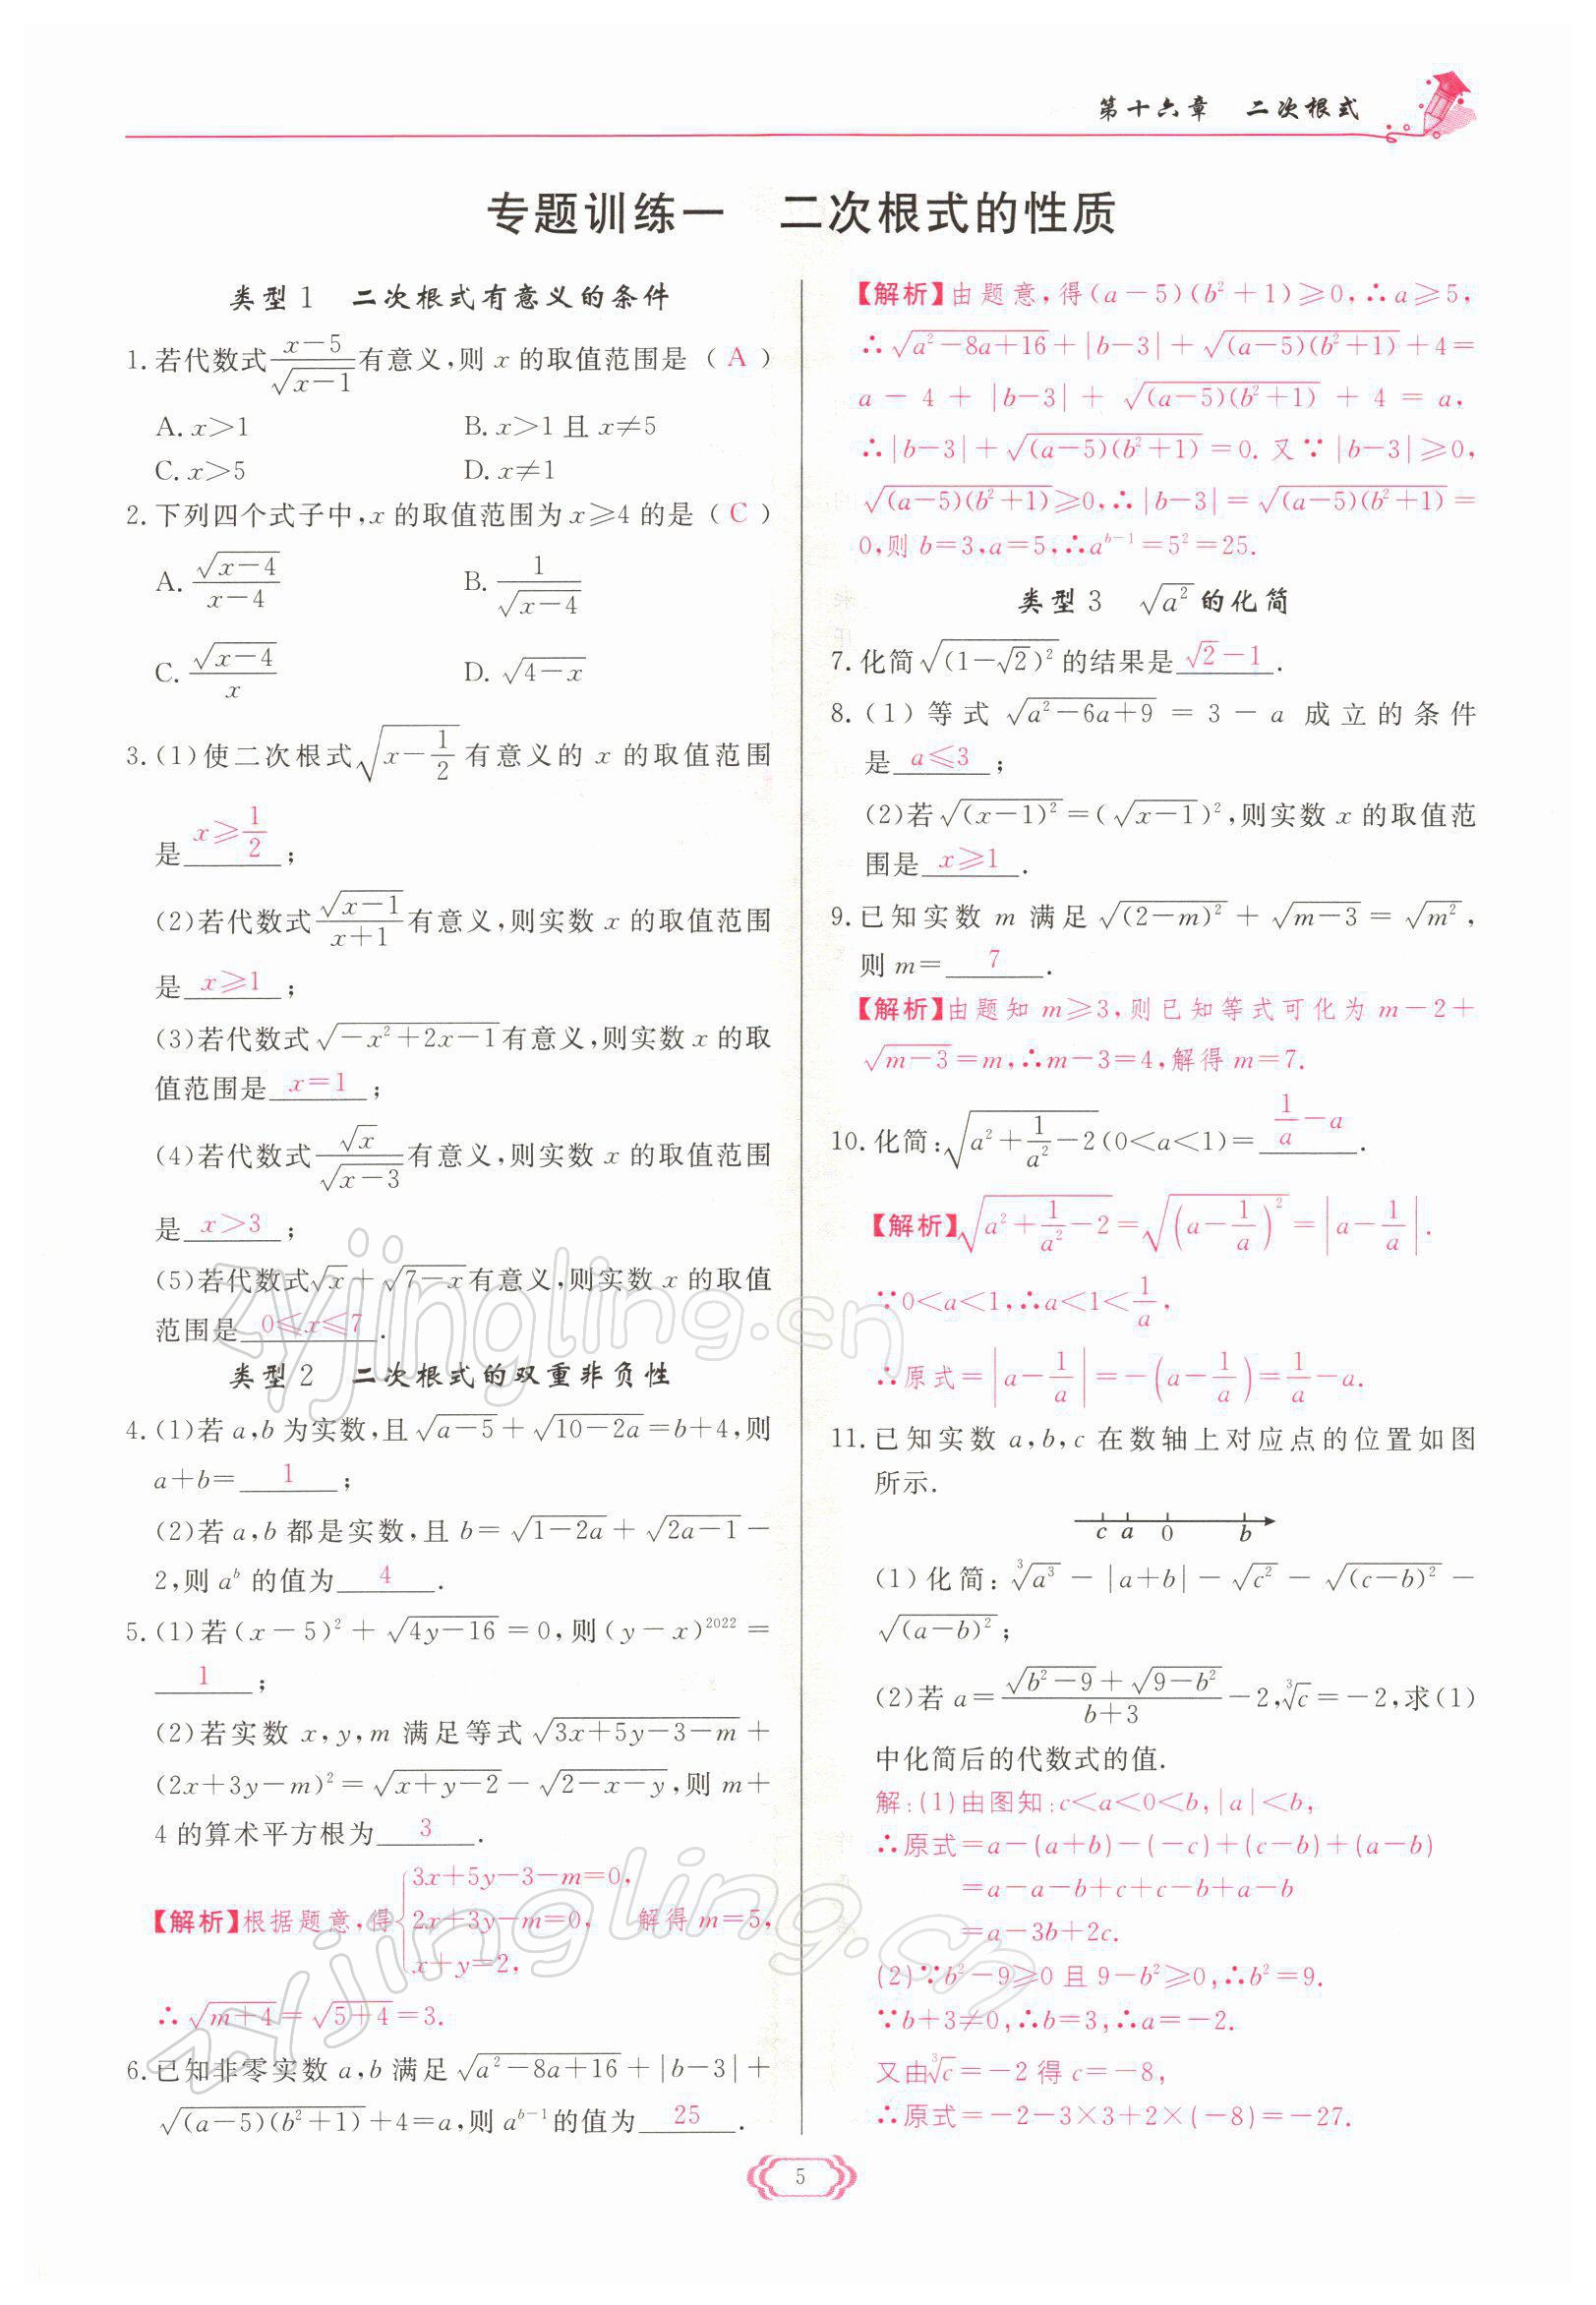 第十六章 二次根式
专题训练一 二次根式的性质
类型1 二次根式有意义的条件
1.若代数式(x-5)/√(x-1)有意义,则 x 的取值范围是( A )
A. x>1 B. x>1 且 x≠5
C. x>5 D. x≠1
2.下列四个式子中,x 的取值范围为 x≥4 的是( C )
A. √(x-4)/(x-4) B. 1/√(x-4)
C. √(x-4)/x D. √(4-x)
3.(1)使二次根式√(x-1/2)有意义的 x 的取值范围
是 x≥1/2 ;
(2)若代数式√(x-1)/(x+1)有意义,则实数 x 的取值范围
是 x≥1 ;
(3)若代数式√(-x²+2x-1)有意义,则实数 x 的取
值范围是 x=1 ;
(4)若代数式√x/√(x-3)有意义,则实数 x 的取值范围
是 x>3 ;
(5)若代数式√x+√(7-x)有意义,则实数 x 的取值
范围是 0≤x≤7 .
类型2 二次根式的双重非负性
4.(1)若 a,b 为实数,且√(a-5)+√(10-2a)=b+4,则
a+b= 1 ;
(2)若 a,b 都是实数,且 b=√(1-2a)+√(2a-1)-
2,则 aᵇ 的值为 4 .
5.(1)若(x-5)²+√(4y-16)=0,则(y-x)²⁰²²=
1 ;
(2)若实数 x,y,m 满足等式√(3x+5y-3-m)+
(2x+3y-m)²=√(x+y-2)-√(2-x-y),则 m+
4 的算术平方根为 3 .
【解析】根据题意,得{3x+5y-3-m=0, 2x+3y-m=0, x+y=2, 解得 m=5,
∴√(m+4)=√(5+4)=3.
6.已知非零实数 a,b 满足√(a²-8a+16)+|b-3|+
√((a-5)(b²+1))+4=a,则 a^(b-1)的值为 25 .
【解析】由题意,得(a-5)(b²+1)≥0,∴a≥5,
∴√(a²-8a+16)+|b-3|+√((a-5)(b²+1))+4=
a-4+|b-3|+√((a-5)(b²+1))+4=a,
∴|b-3|+√((a-5)(b²+1))=0.又∵|b-3|≥0,
√((a-5)(b²+1))≥0,∴|b-3|=√((a-5)(b²+1))=
0,则 b=3,a=5,∴a^(b-1)=5²=25.
类型3 √(a²)的化简
7.化简√((1-√2)²)的结果是 √2-1 .
8.(1)等式√(a²-6a+9)=3-a 成立的条件
是 a≤3 ;
(2)若√((x-1)²)=(√(x-1))²,则实数 x 的取值范
围是 x≥1 .
9.已知实数 m 满足√((2-m)²)+√(m-3)=√(m²),
则 m= 7 .
【解析】由题知 m≥3,则已知等式可化为 m-2+
√(m-3)=m,∴m-3=4,解得 m=7.
10.化简:√(a²+1/a²-2)(0<a<1)= 1/a-a .
【解析】√(a²+1/a²-2)=√((a-1/a)²)=|a-1/a|.
∵0<a<1,∴a<1<1/a,
∴原式=|a-1/a|=-(a-1/a)=1/a-a.
11.已知实数 a,b,c 在数轴上对应点的位置如图
所示.
c a 0 b
(1)化简:∛(a³)-|a+b|-√(c²)-√((c-b)²)-
√((a-b)²);
(2)若 a=(√(b²-9)+√(9-b²))/(b+3)-2,∛c=-2,求(1)
中化简后的代数式的值.
解:(1)由图知:c<a<0<b,|a|<b,
∴原式=a-(a+b)-(-c)+(c-b)+(a-b)
=a-a-b+c+c-b+a-b
=a-3b+2c.
(2)∵b²-9≥0 且 9-b²≥0,∴b²=9.
∵b+3≠0,∴b=3,∴a=-2.
又由∛c=-2 得 c=-8,
∴原式=-2-3×3+2×(-8)=-27.
5
zyjingling.cn
zyjingling.cn